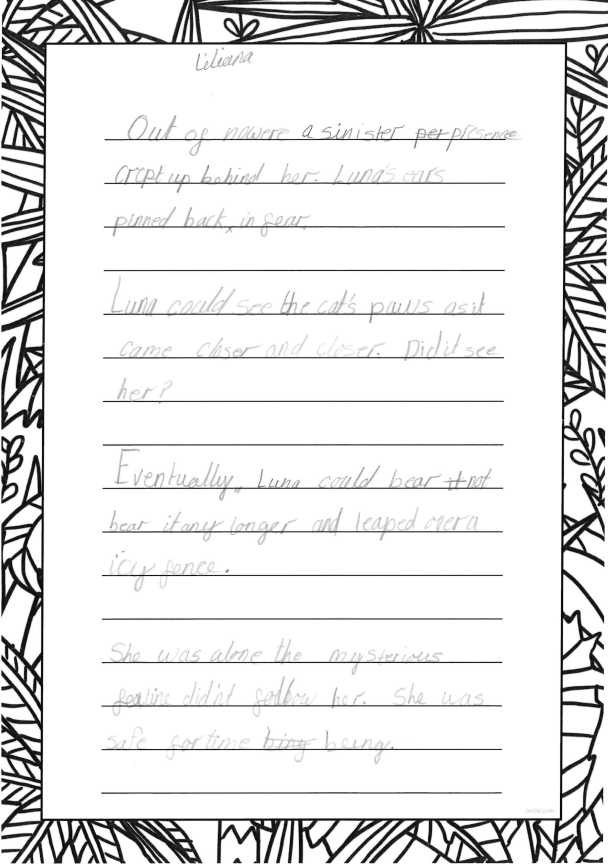 Liliana
Out of nowere a sinister per presence
crept up behind her. Luna's ears
pinned back, in fear.
Luna could see the cat's paws as it
came closer and closer. Did it see
her?
Eventually, Luna could bear it not
bear it any longer and leaped over a
icy fence.
She was alone the mysterious
feline did'nt follow her. She was
safe for time biny being.
twinkl.com